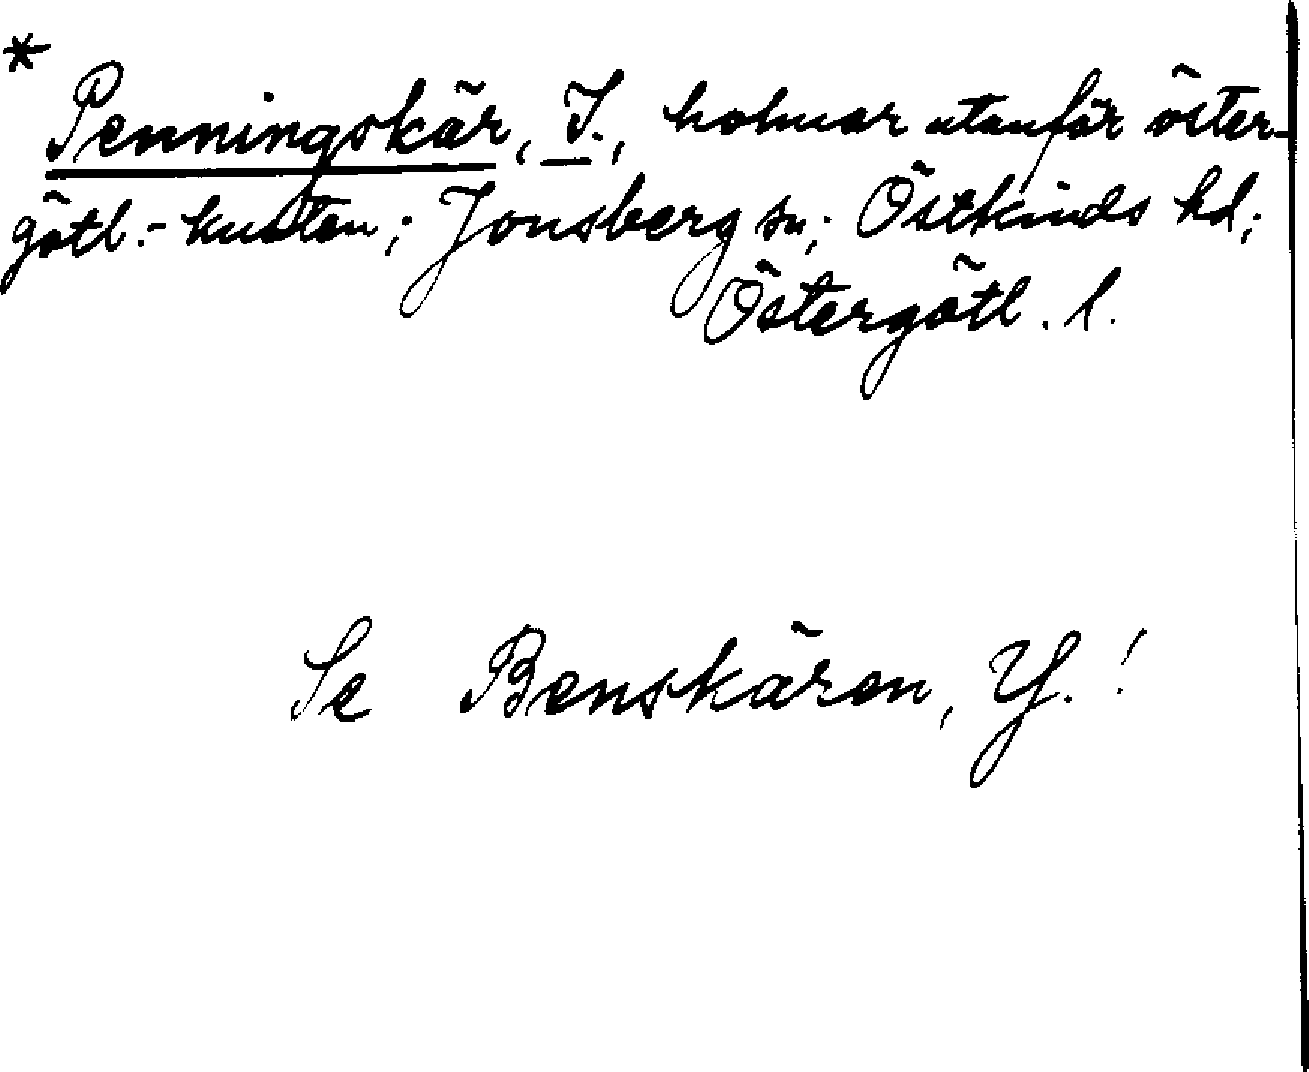 *
Penningskär, I., holmar utanför öster-
götl.-kusten; Jonsberg sn; Östkinds hd;
Östergötl. l.
Se Benskären, Y.!